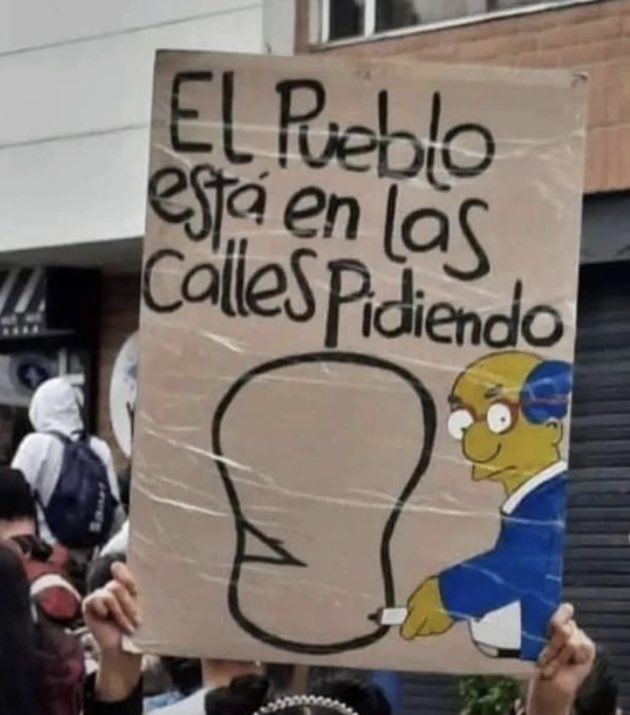 El Pueblo
está en las
calles pidiendo